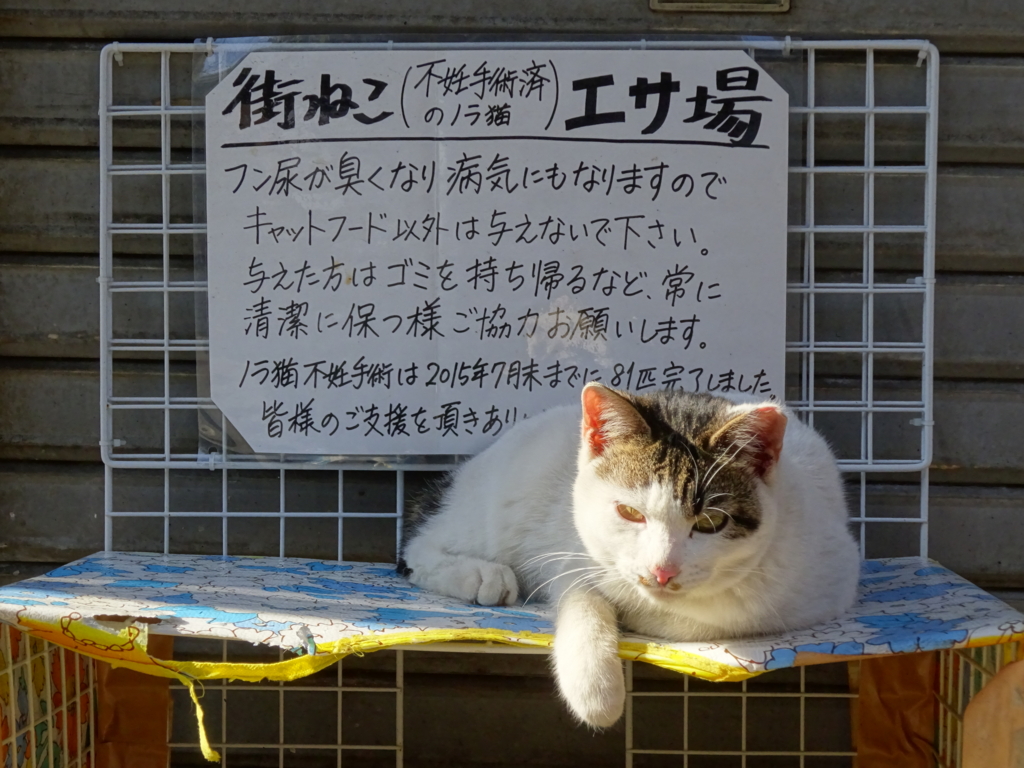 街ねこ(不妊手術済のノラ猫)エサ場
フン尿が臭くなり病気にもなりますので
キャットフード以外は与えないで下さい。
与えた方はゴミを持ち帰るなど、常に
清潔に保つ様ご協力お願いします。
ノラ猫不妊手術は2015年7月末までに81匹完了しました。
皆様のご支援を頂きあり